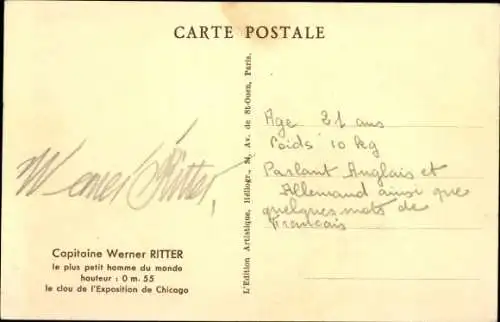 CARTE POSTALE
Werner Ritter
Capitaine Werner RITTER
le plus petit homme du monde
hauteur : 0 m. 55
le clou de l'Exposition de Chicago
L'Edition Artistique, Héliogr., 24, Av. de St-Ouen, Paris.
Age 21 ans
Poids 10 kg
Parlant Anglais et
Allemand ainsi que
quelques mots de
Francais